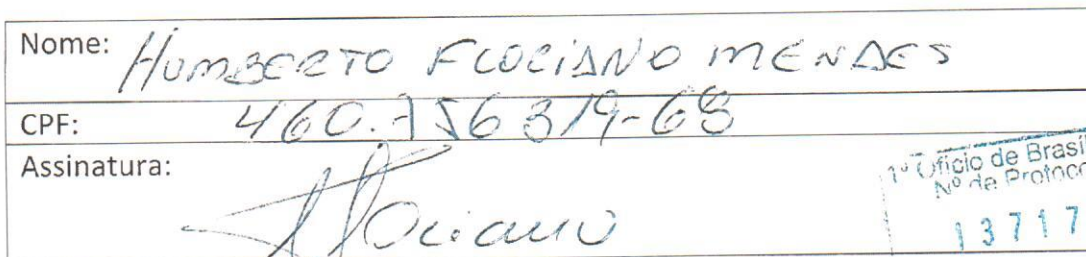 Nome: HUMBERTO FLOCIANO MENDES
CPF: 460.756319-68
Assinatura: Floriano
1º Ofício de Brasíl
Nº de Protoco
13717